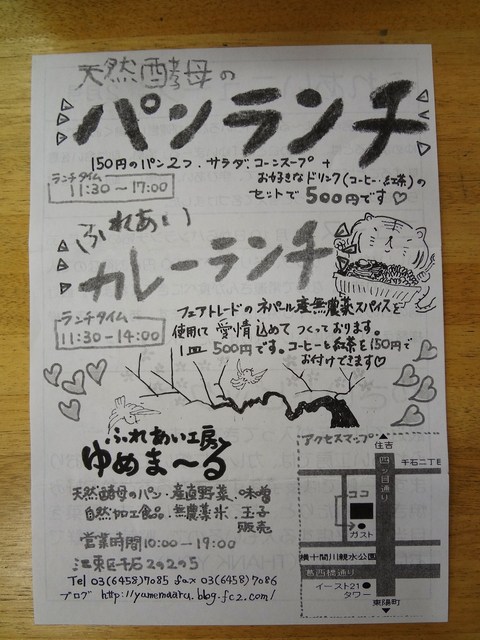 天然酵母の
パンランチ
150円のパン2つ・サラダ・コーンスープ+
お好きなドリンク(コーヒー・紅茶)の
セットで500円です♡
ランチタイム
11:30〜17:00
ふれあい
カレーランチ
ランチタイム
11:30-14:00
フェアトレードのネパール産無農薬スパイスを
使用して愛情込めてつくっております。
1皿500円です。コーヒーと紅茶を150円で
お付けできます♡
ふれあい工房
ゆめま〜る
天然酵母のパン・産直野菜・味噌
自然加工食品・無農薬米・玉子
販売
営業時間10:00-19:00
江東区千石2の2の5
Tel 03(6458)7085 fax 03(6458)7086
ブログ http://yumemaaru.blog.fc2.com/
アクセスマップ
住吉
四ツ目通り
千石二丁目
ココ
ガスト
横十間川親水公園
葛西橋通り
イースト21
タワー
東陽町